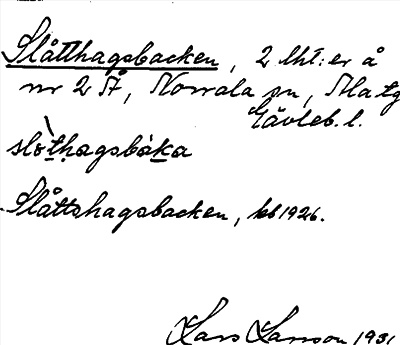 Slåtthagsbacken, 2 lht:er å
nr 2 Å, Norrala sn,
Gävleb. l.
slò̱ṯḥagsbàḵa
Slåttshagsbacken, kb 1926.
Lars Larsson 1931